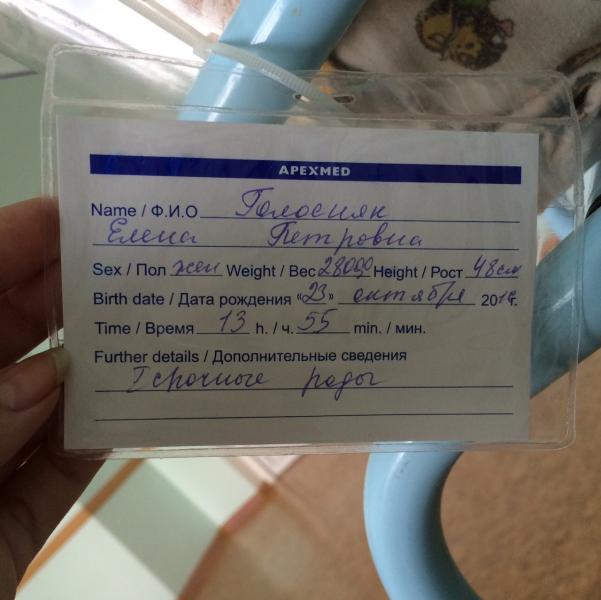 APEXMED
Name / Ф.И.О Голосняк
Елена Петровна
Sex / Пол жен Weight / Вес 2800,0 Height / Рост 48см
Birth date / Дата рождения «23» октября 2014г.
Time / Время 13 h. / ч. 55 min. / мин.
Further details / Дополнительные сведения
I срочные роды